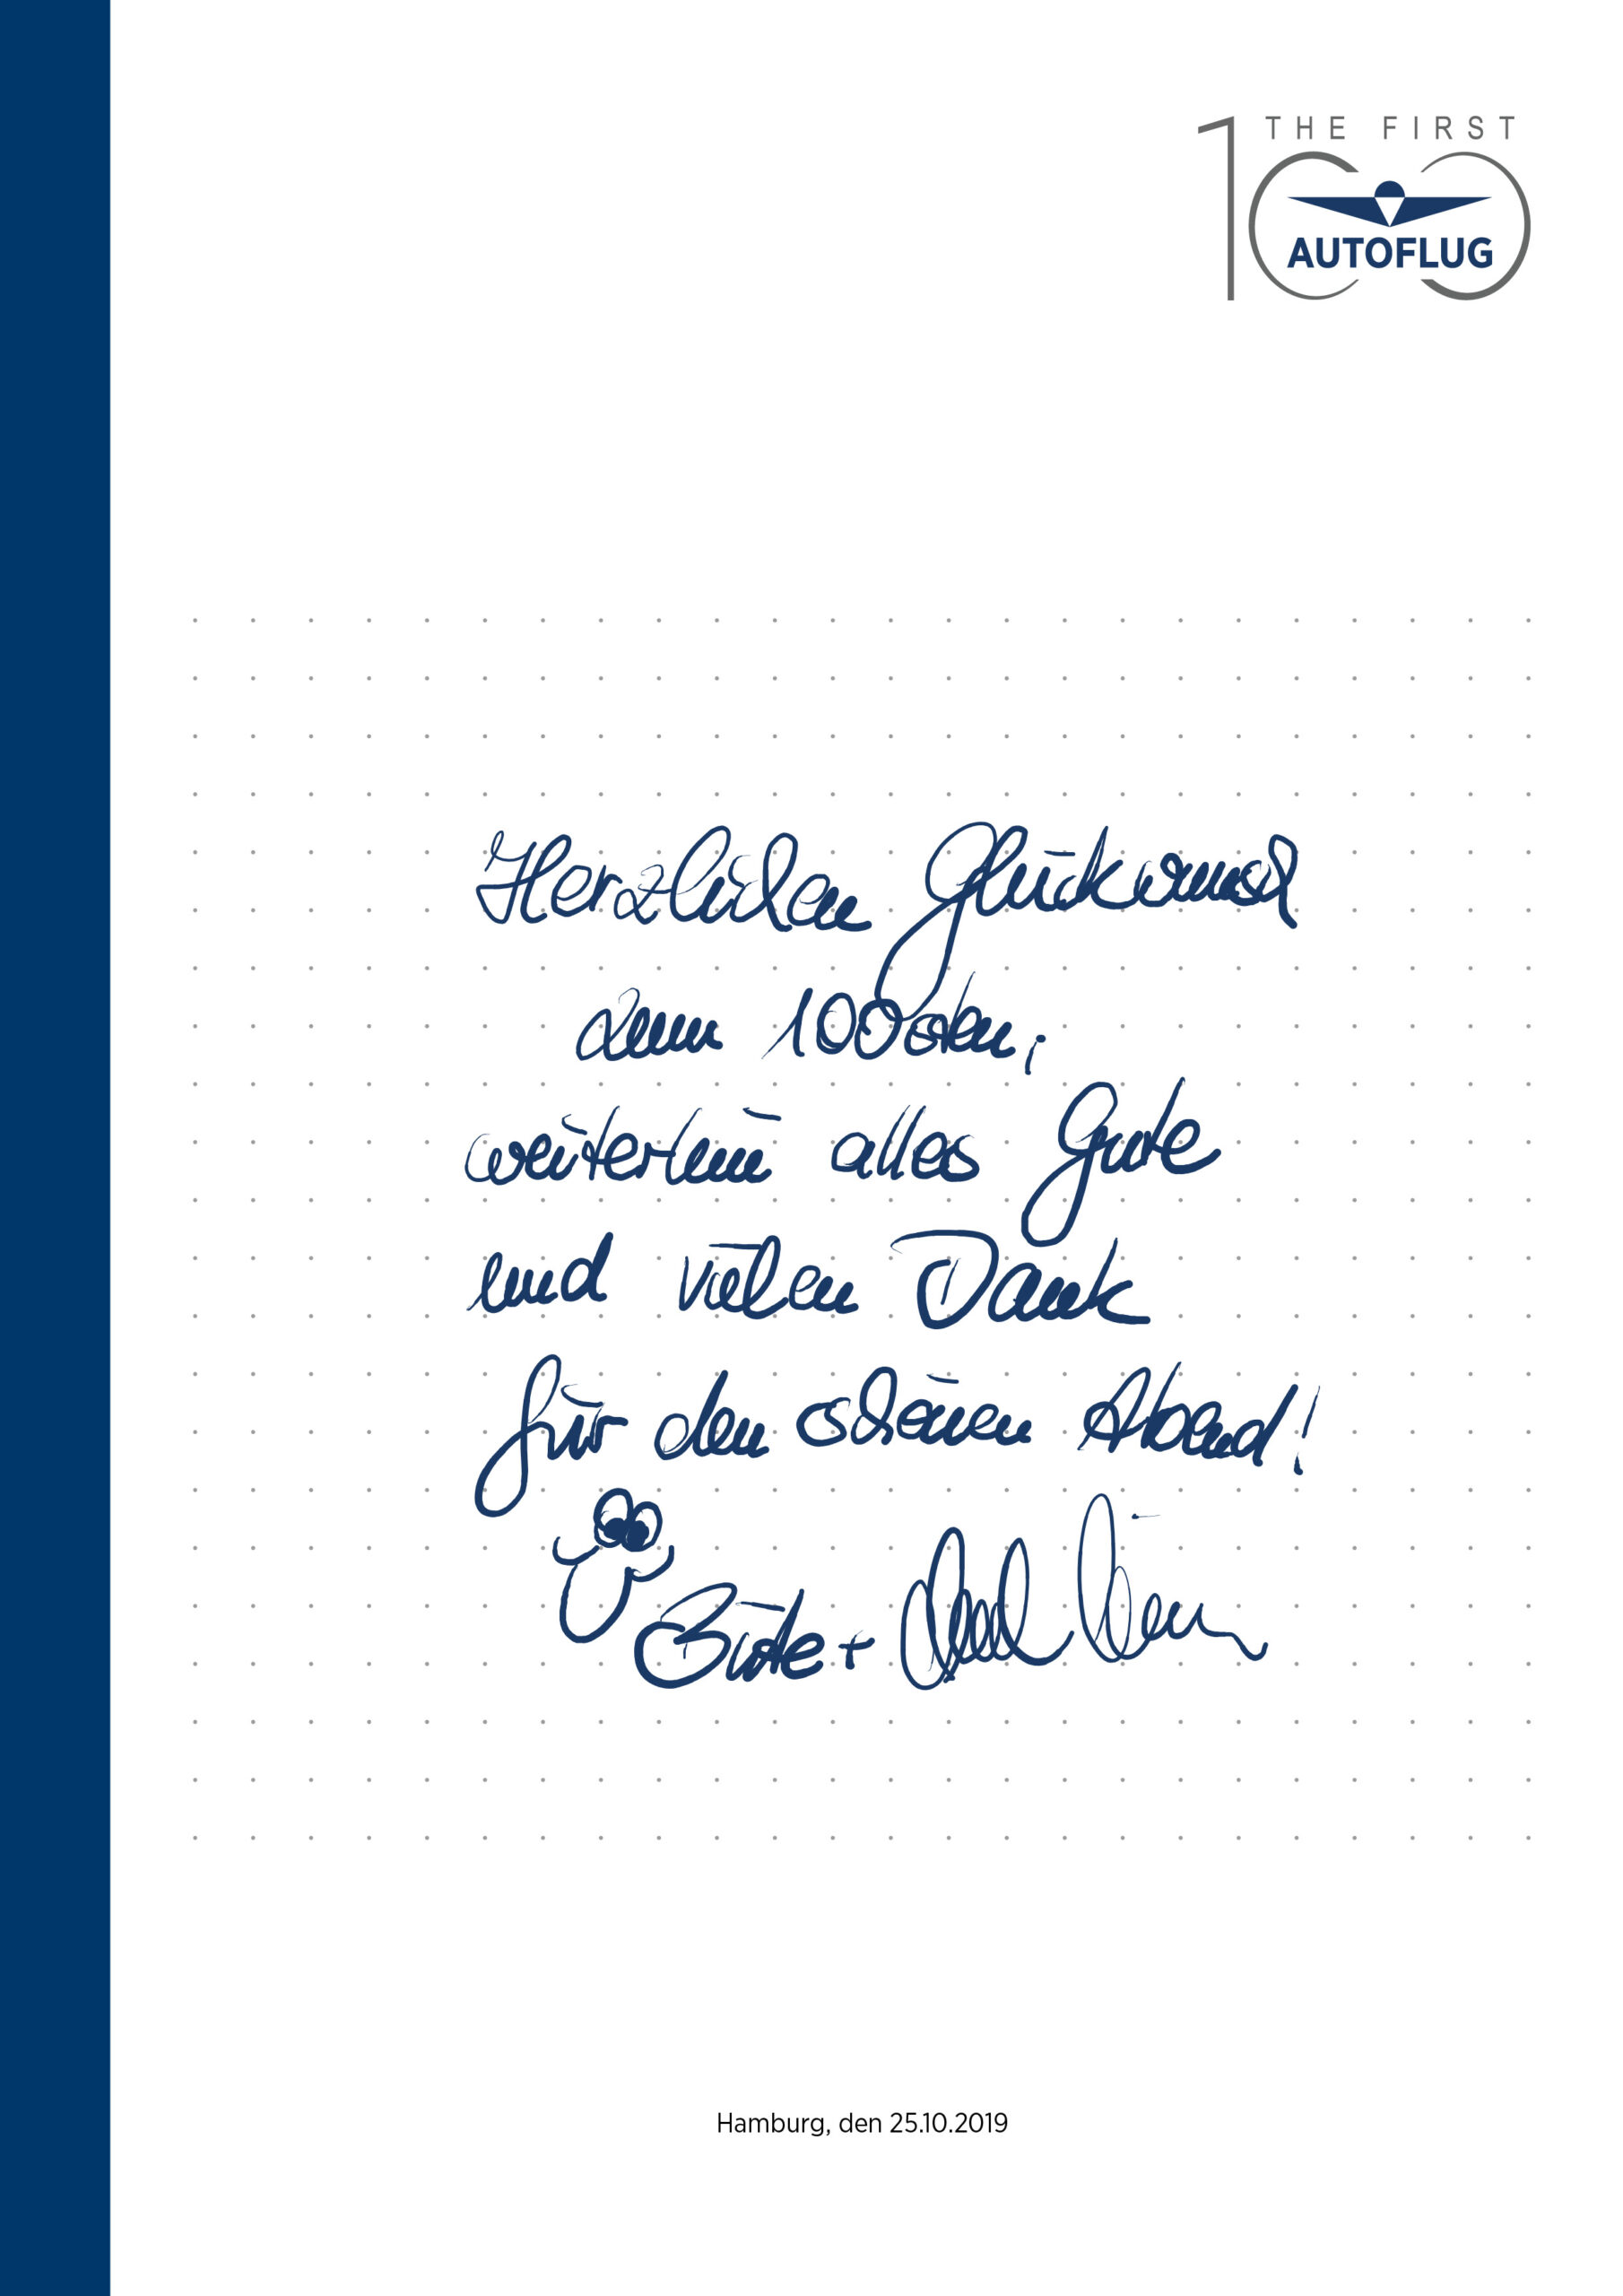 THE FIRST
100
AUTOFLUG
Herzlichen Glückwunsch
dem 100sten,
weiterhin alles Gute
und vielen Dank
für den schönen Abend!
+
Hamburg, den 25.10.2019